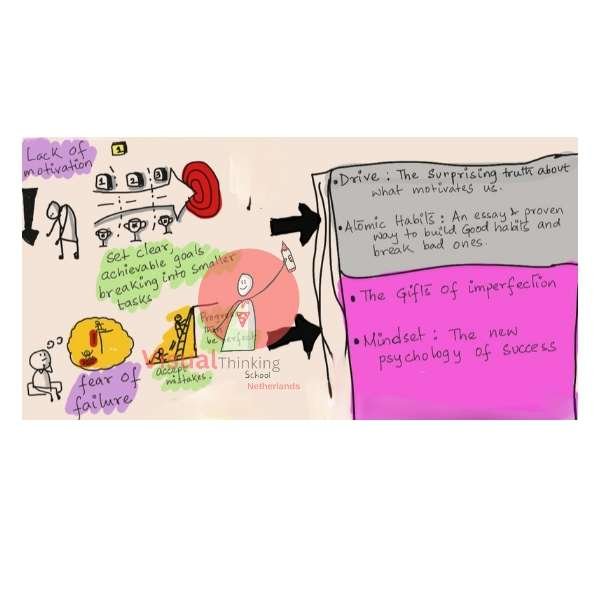 Lack of
motivation
1
1
2
3
set clear,
achievable goals
breaking into smaller
tasks
fear of
failure
accept
mistakes.
be perfect
Visual Thinking
School
Netherlands
• Drive : The surprising truth about
what motivates us.
• Atomic Habits : An essay & proven
way to build Good habits and
break bad ones.
• The Gifts of imperfection
• Mindset : The new
psychology of success